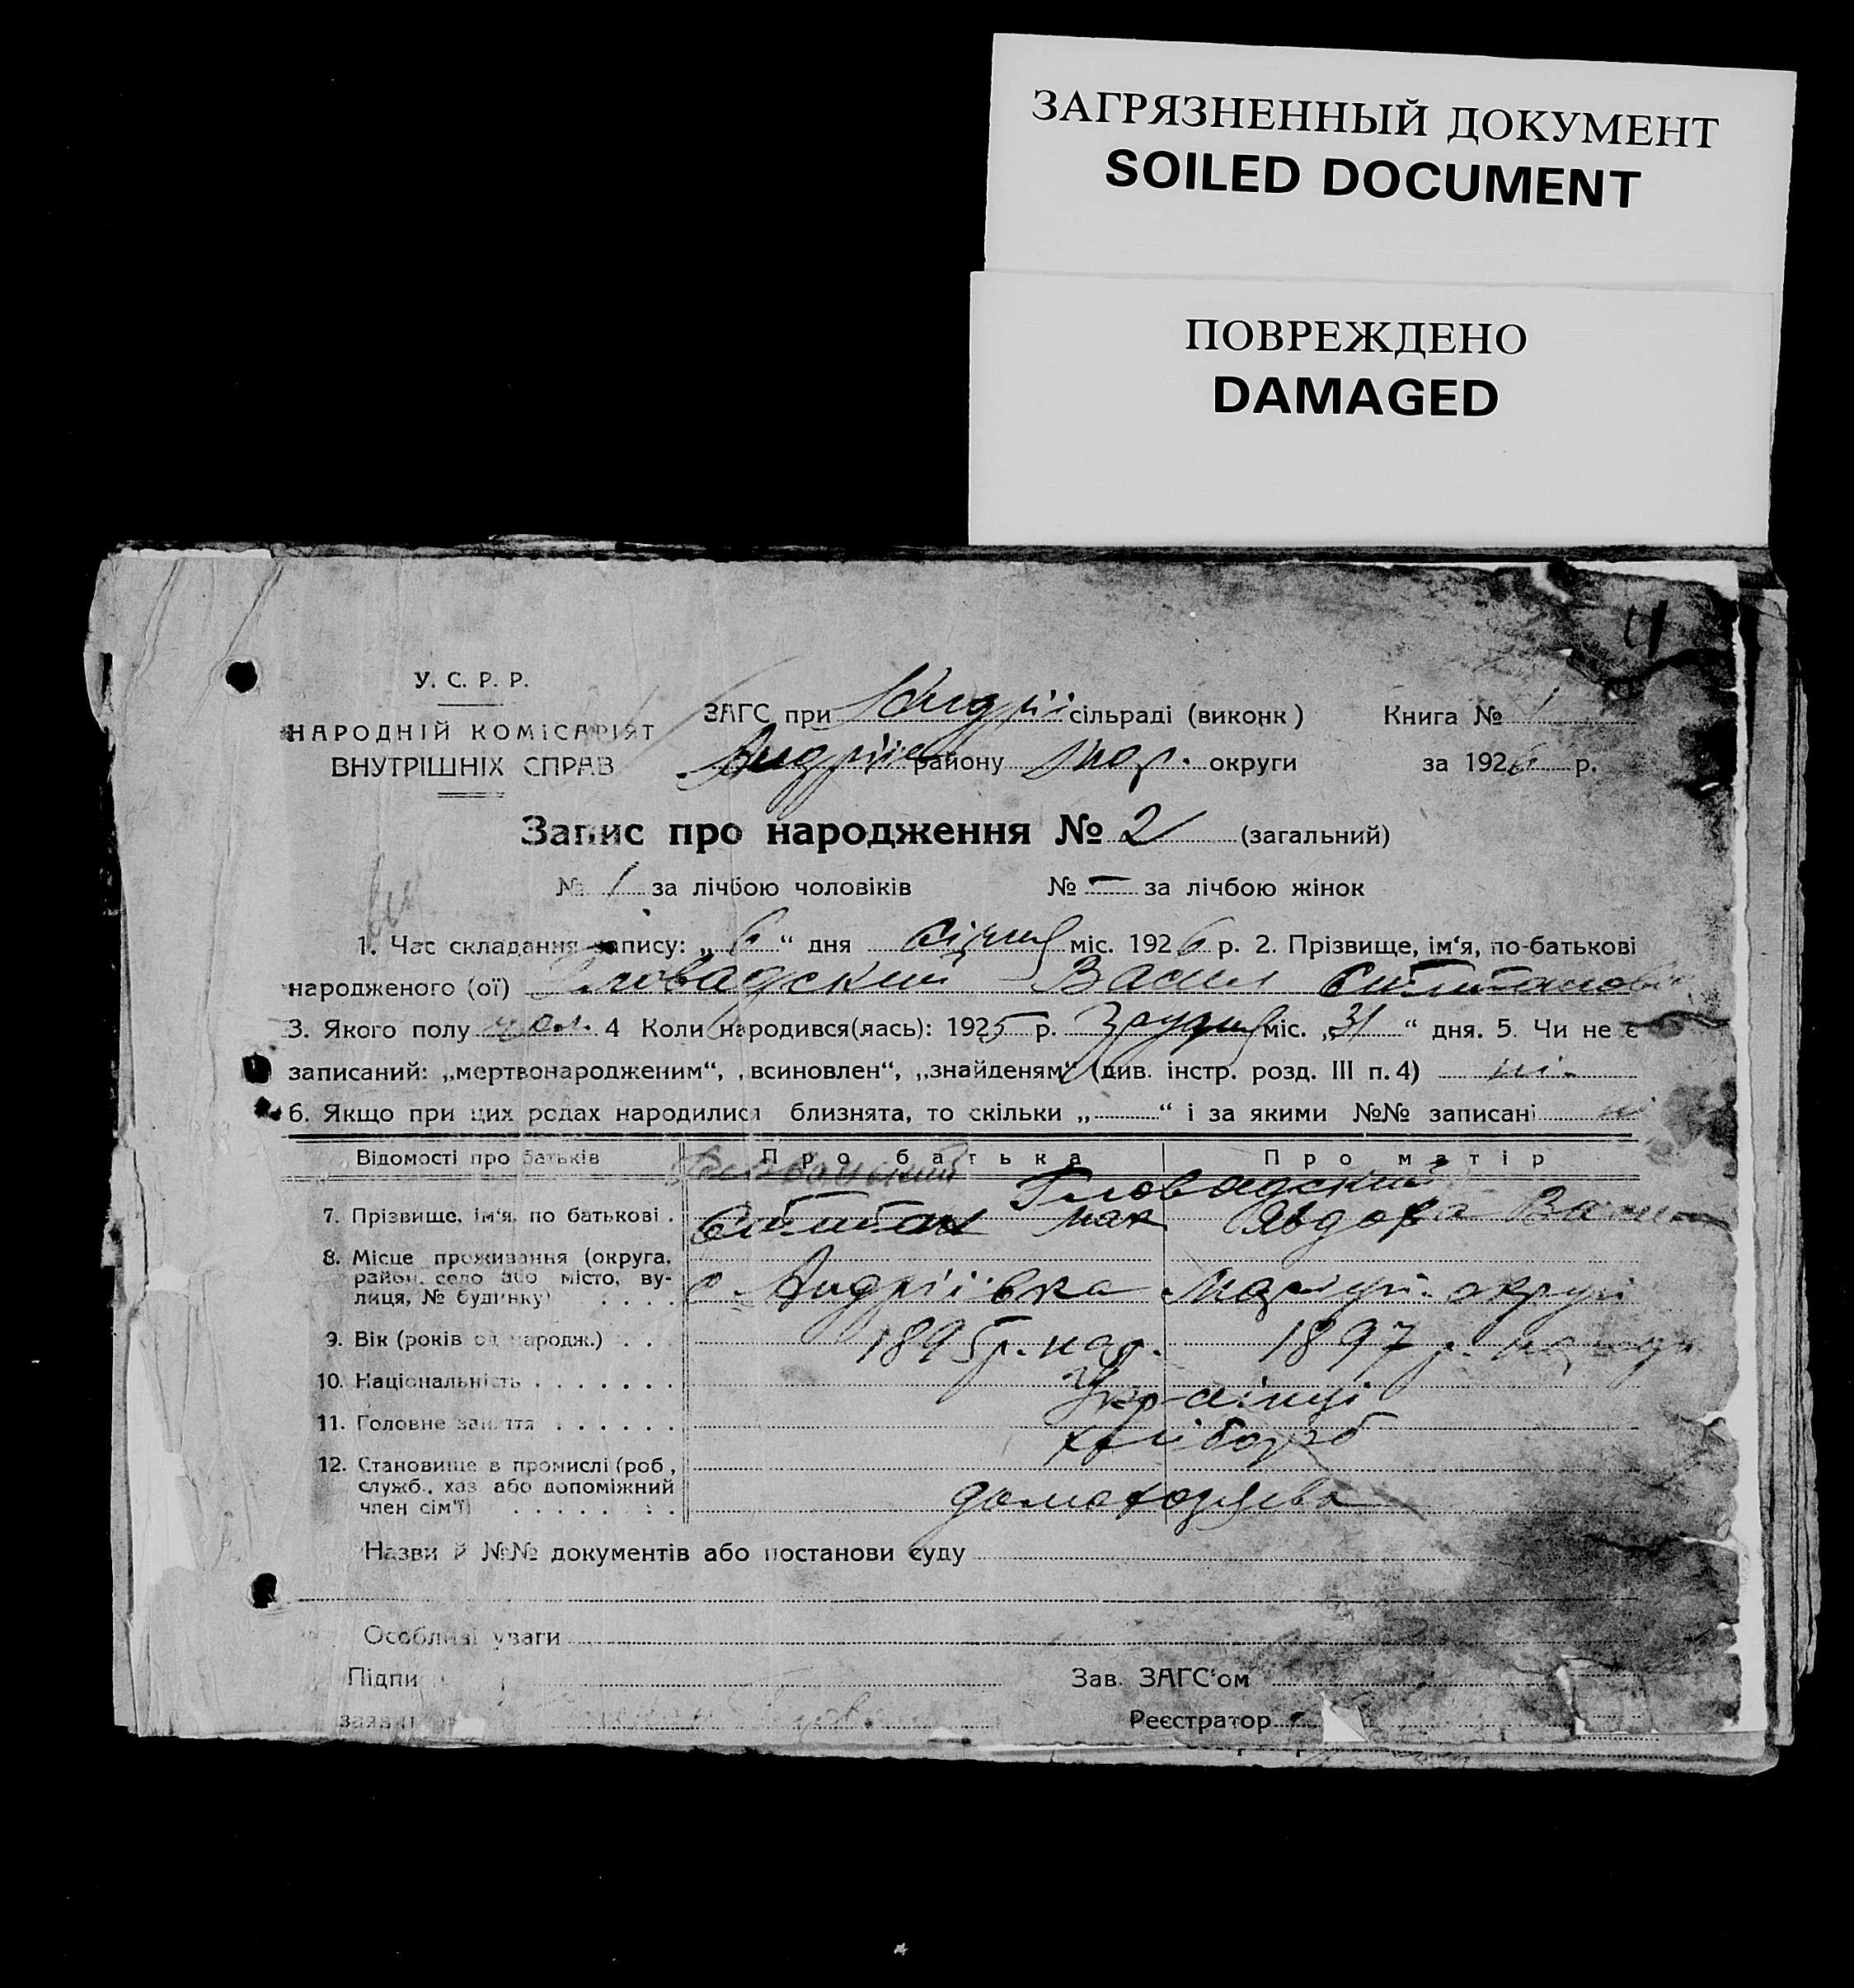 ЗАГРЯЗНЕННЫЙ ДОКУМЕНТ
SOILED DOCUMENT
ПОВРЕЖДЕНО
DAMAGED
4
У. С. Р. Р.
НАРОДНІЙ КОМІСАРІЯТ
ВНУТРІШНІХ СПРАВ
ЗАГС при Андрії сільраді (виконк) Книга № 1
Андріїв району Мар. округи за 1926 р.
Запис про народження № 2 (загальний)
№ 1 за лічбою чоловіків № – за лічбою жінок
1. Час складання запису: „6“ дня січня міс. 1926 р. 2. Прізвище, ім‘я, по-батькові
народженого (ої) Гловадский Васил Степанов
3. Якого полу чол. 4 Коли народився(лась): 1925 р. Грудня міс. „31“ дня. 5. Чи не є
записаний: „мертвонародженим“, „всиновлен“, „знайденям“ (див. інстр. розд. III п. 4) ні.
6. Якщо при цих родах народилися близнята, то скільки „ “ і за якими №№ записані ні
Відомості про батьків Про батька Про матір
Гловадский
7. Прізвище, ім‘я, по батькові . Степан Мак Явдоха Васил
8. Місце проживання (округа, район, село або місто, вулиця, № будинку) . . . . с Андріївка Маріуп. округи
9. Вік (років од народж.) . . . 1895 р. нар. 1897 р. народ
10. Національність . . . . . . . Українці
11. Головне заняття . . . . . . хлібороб
12. Становище в промислі (роб., служб., хаз. або допоміжний член сім‘ї) . . . . . . .
Назви й №№ документів або постанови суду
Особливі уваги
Підпи Зав. ЗАГС‘ом
заяви Реєстратор